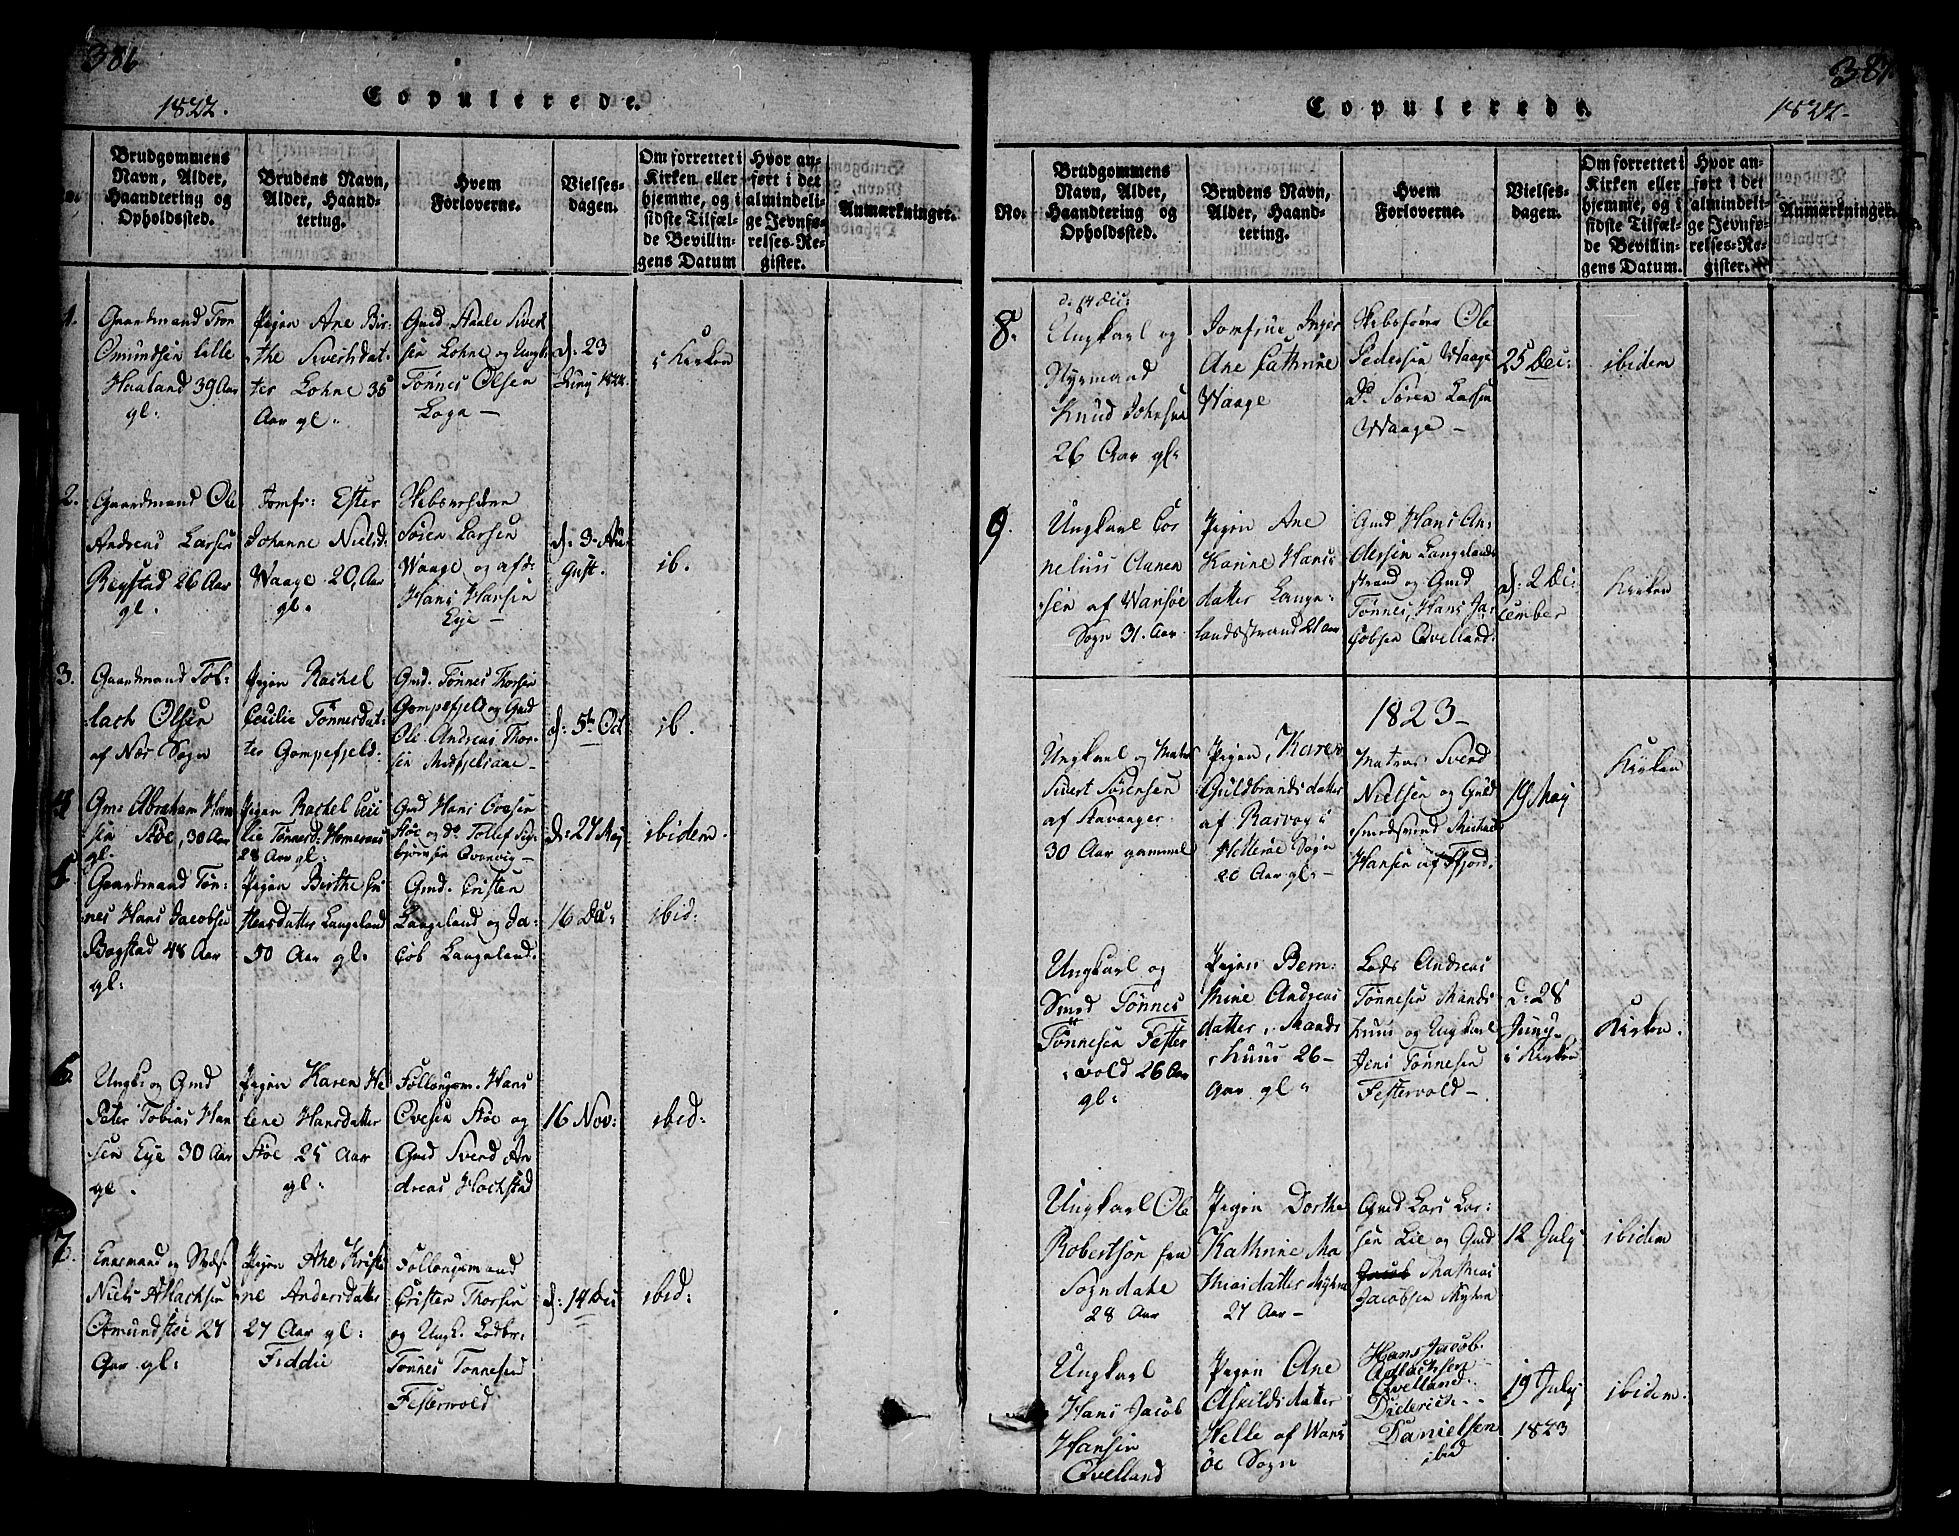 386
1822.
Copulerede.
Brudgommens Navn, Alder, Haandtering og Opholdssted.
Brudens Navn, Alder, Haandtering.
Hvem Forloverne.
Vielsesdagen.
Om forrettet i Kirken eller hjemme, og i sidste Tilfælde Bevillingens Datum
Hvor anført i det almindelige Jevnførelses-Register.
Anmærkninger.
1.
Gaardmand
Omundsen lille
Haaland 39 Aar
gl:
Pigen Ane Bir-
the Sivertsdat-
ter Lohne 35
Aar gl.
Gmd Staale Sivert
sen Lohne og Ungk
Tønnes Olsen
Loga –
d: 23
Juny 1822.
i Kirken
2.
Gaardmand Ole
Andreas Larsen
Regstad 26 Aar
gl.
Jomfr: Ester
Johanne Nielsd.
Waage 20 Aar
gl.
Søren Larsen
Waage og
Hans Hansen
Eye –
d. 3. Au-
gust.
ib.
3.
Gaardmand Tol-
lach Olsen
af Nær Sogn
Pigen Rachel
Cecilie Tønnesdat-
ter Gompefjeld.
Gmd. Tønnes Thorsen
Gompefjeld og Gmd
Ole Andreas Thor-
sen
d. 5te Oct
ib.
4
Gm: Abraham Han
sen Støe, 30 Aar
gl.
Pigen Rachel Ceci
lie Tønnesd:
28 Aar gl:
Gmd Hans Ovesen
Støe og do Tollef Sig-
bjørnsen
d: 27 May
ibidem.
5.
Gaardmand Tøn-
nes Hans Jacobsen
Bogstad 48 Aar
gl:
Pigen Birthe Cri
stensdatter Langeland
50 Aar gl.
Gmd. Cristen
Langeland og Ja-
cob Langeland.
16 Dec:
ibid:
6.
Ungk: og Gmd
Peter Tobias Han
sen Eye 30 Aar
gl.
Pigen Karen He
lene Hansdatter
Støe 25 Aar
gl.
Føllougsm. Hans
Ovesen Støe og
Gmd Sverd An
dreas Hochstad
16 Nov:
ibid:
7.
Enkemand og
Niels Atlachsen
Omundstøe 27
Aar gl:
Pigen Ane Kristi
ne Andersdatter
27 Aar gl:
Fiddie
Føllougsmand
Cristen Thorsen
og Ungk.
Tønnes Tønnesen
Festervold
d: 14 Dec
ibid:
387
1822.
Copulerede.
No:
Brudgommens Navn, Alder, Haandtering og Opholdssted.
Brudens Navn, Alder, Haandtering.
Hvem Forloverne.
Vielsesdagen.
Om forrettet i Kirken eller hjemme, og i sidste Tilfælde Bevillingens Datum.
Hvor anført i det almindelige Jevnførelses-Register.
Anmærkninger.
8.
d. 14 Dec:
Ungkarl og
Styrmand
Knud Johnsen
26 Aar gl.
Jomfrue Inger
Ane Cathrine
Waage
Skibsfører Ole
Pedersen Waage
Do Søren Larsen
Waage –
25 Dec:
ibidem
9.
Ungkarl Cor
nelius Aanen
sen af Vansøe
Sogn 31. Aar
Pigen Ane
Karine Hans
datter Lange-
landsstrand 21 Aar
Gmd Hans An-
dersen Langelands
strand og Gmd
Tønnes Hans Ja-
cobsen Qvelland.
d. 2 De-
cember
Kirken
1823–
Ungkarl og Matros
Sivert Sørensen
af Stavanger.
30 Aar gammel
Pigen, Karen
Guldbrandsdatter
af Rasvog i
Hitterøe Sogn
20 Aar gl. –
Matros Sverd
Nielsen og Guld
smedsvend Michael
Hansen af Fjord.
19 May
Kirken
Ungkarl og
Smed Tønnes
Tønnesen Fester
vold 26 Aar
gl:
Pigen Bem-
thine Andreas
datter, Mands
huus 26 –
Aar gl.
Lods Andreas
Tønnesen Mands
huus og Ungkarl
Jens Tønnesen
Festervold –.
d: 28
Juny
i Kirken
Kirken.
Ungkarl Ole
Robertson fra
Sogndahl
28 Aar
Pigen Dorthe
Kathrine Ma
thiasdatter
27 Aar –
Gmd Lars Lar-
sen Lie og Gmd
Jacob Mathias
Jacobsen
12 July
ibidem
Ungkarl
Hans Jacob
Hansen
Qvelland
Pigen Ane
Askildsdatter
Helle af Vans
øe Sogn
Hans Jacob
Adlachsen
Qvelland.
Diderich
Danielsen
ibid
19 July
1823
ibidem.